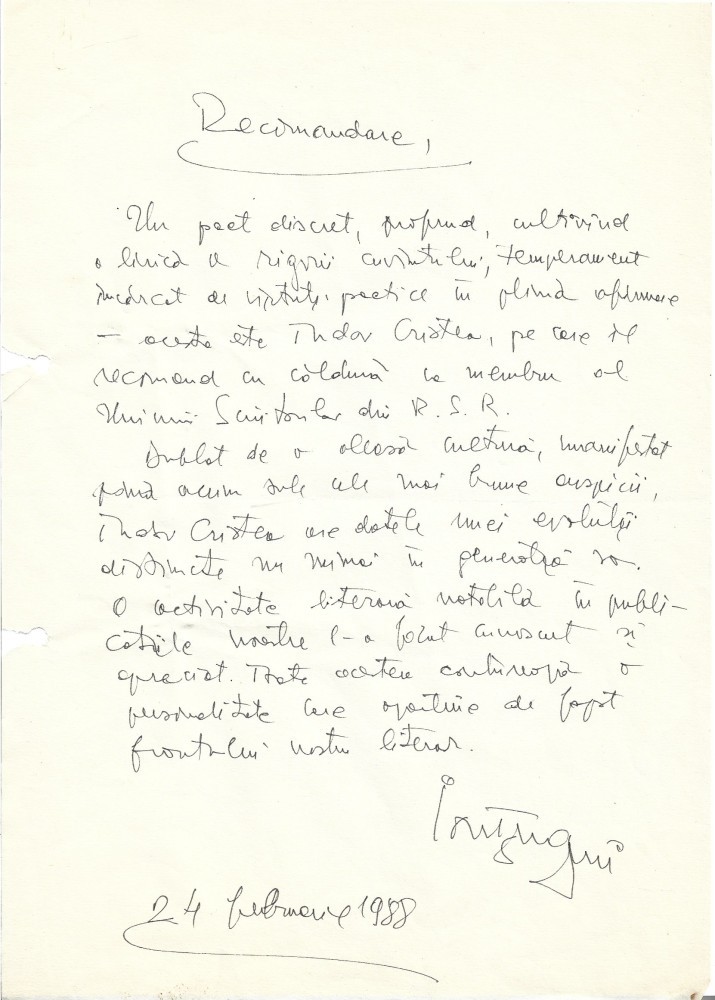 Recomandare,
Un poet discret, profund, cultivînd
o lirică a rigorii cuvîntului, temperament
încărcat de virtuți poetice în plină afirmare
— acesta este Tudor Cristea, pe care îl
recomand cu căldură ca membru al
Uniunii Scriitorilor din R. S. R.
Dublat de o aleasă cultură, manifestat
pînă acum sub cele mai bune auspicii,
Tudor Cristea are datele unei evoluții
distincte nu numai în generația sa.
O activitate literară notabilă în publi-
cațiile noastre l-a făcut cunoscut și
apreciat. Toate acestea conturează o
personalitate care aparține de fapt
frontului nostru literar.
24 februarie 1988